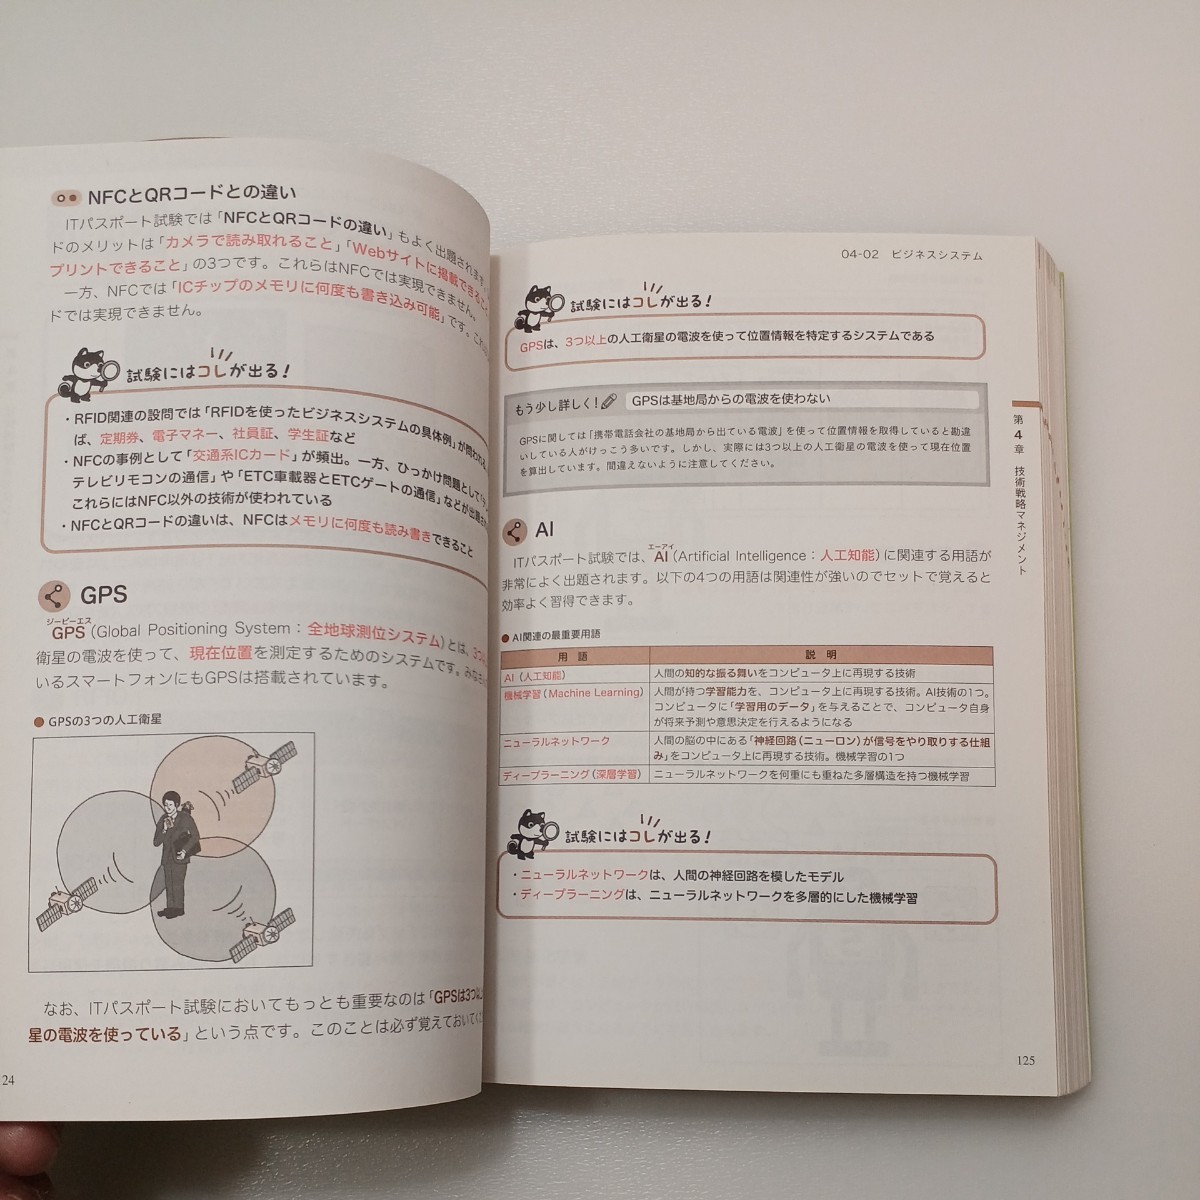 NFCとQRコードとの違い
ITパスポート試験では「NFCとQRコードの違い」もよく出題されます。
ドのメリットは「カメラで読み取れること」「Webサイトに掲載できること
プリントできること」の3つです。これらはNFCでは実現できません。
一方、NFCでは「ICチップのメモリに何度も書き込み可能」です。これ
ドでは実現できません。
試験にはコレが出る!
・RFID関連の設問では「RFIDを使ったビジネスシステムの具体例」が問われる
ば、定期券、電子マネー、社員証、学生証など
・NFCの事例として「交通系ICカード」が頻出。一方、ひっかけ問題として「
テレビリモコンの通信」や「ETC車載器とETCゲートの通信」などが出題
これらにはNFC以外の技術が使われている
・NFCとQRコードの違いは、NFCはメモリに何度も読み書きできること
GPS
ジーピーエス
GPS(Global Positioning System:全地球測位システム)とは、3つ
衛星の電波を使って、現在位置を測定するためのシステムです。みな
いるスマートフォンにもGPSは搭載されています。
●GPSの3つの人工衛星
なお、ITパスポート試験においてもっとも重要なのは「GPSは3つ以
星の電波を使っている」という点です。このことは必ず覚えておいてく
124
04-02 ビジネスシステム
試験にはコレが出る!
GPSは、3つ以上の人工衛星の電波を使って位置情報を特定するシステムである
もう少し詳しく! GPSは基地局からの電波を使わない
GPSに関しては「携帯電話会社の基地局から出ている電波」を使って位置情報を取得していると勘違
いしている人がけっこう多いです。しかし、実際には3つ以上の人工衛星の電波を使って現在位置
を算出しています。間違えないように注意してください。
AI
エーアイ
ITパスポート試験では、AI(Artificial Intelligence:人工知能)に関連する用語が
非常によく出題されます。以下の4つの用語は関連性が強いのでセットで覚えると
効率よく習得できます。
●AI関連の最重要用語
用 語 説 明
AI(人工知能) 人間の知的な振る舞いをコンピュータ上に再現する技術
機械学習(Machine Learning) 人間が持つ学習能力を、コンピュータ上に再現する技術。AI技術の1つ。
コンピュータに「学習用のデータ」を与えることで、コンピュータ自身
が将来予測や意思決定を行えるようになる
ニューラルネットワーク 人間の脳の中にある「神経回路(ニューロン)が信号をやり取りする仕組
み」をコンピュータ上に再現する技術。機械学習の1つ
ディープラーニング(深層学習) ニューラルネットワークを何重にも重ねた多層構造を持つ機械学習
試験にはコレが出る!
・ニューラルネットワークは、人間の神経回路を模したモデル
・ディープラーニングは、ニューラルネットワークを多層的にした機械学習
第4章 技術戦略マネジメント
125